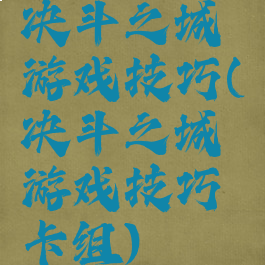 决斗之城
游戏技巧(
决斗之城
游戏技巧
卡组)